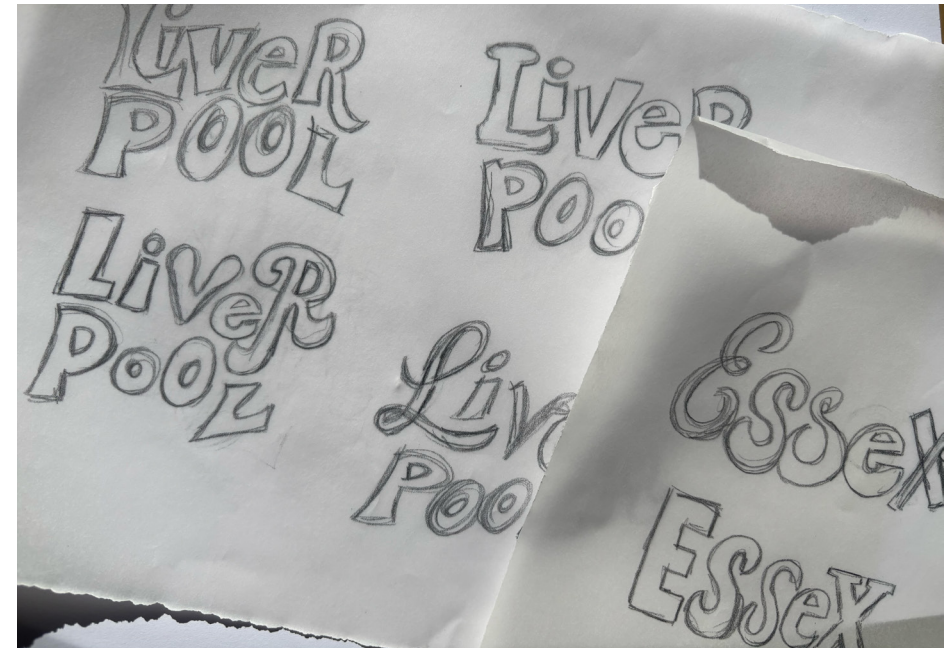 LiveR
POOL
LiveR
POO
LiveR
POOL
Live
POO
Essex
Essex